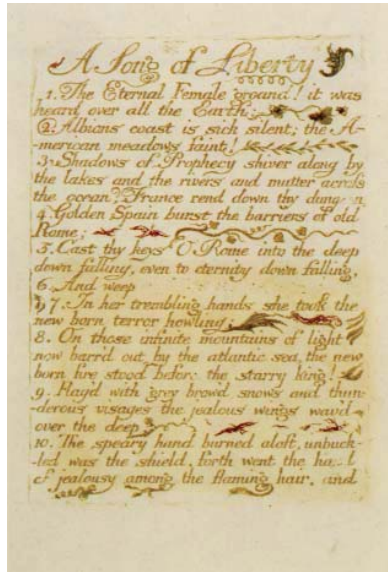 A Song of Liberty
1. The Eternal Female groand! it was
heard over all the Earth:
2. Albions coast is sick silent; the A-
merican meadows faint!
3. Shadows of Prophecy shiver along by
the lakes and the rivers and mutter across
the ocean? France rend down thy dungeon
4. Golden Spain burst the barriers of old
Rome;
5. Cast thy keys O Rome into the deep
down falling, even to eternity down falling,
6. And weep
7. In her trembling hands she took the
new born terror howling;
8. On those infinite mountains of light
now barr'd out by the atlantic sea, the new
born fire stood before the starry king!
9. Flag'd with grey brow'd snows and thun-
derous visages the jealous wings wav'd
over the deep
10. The speary hand burned aloft, unbuck-
led was the shield, forth went the hand
of jealousy among the flaming hair, and